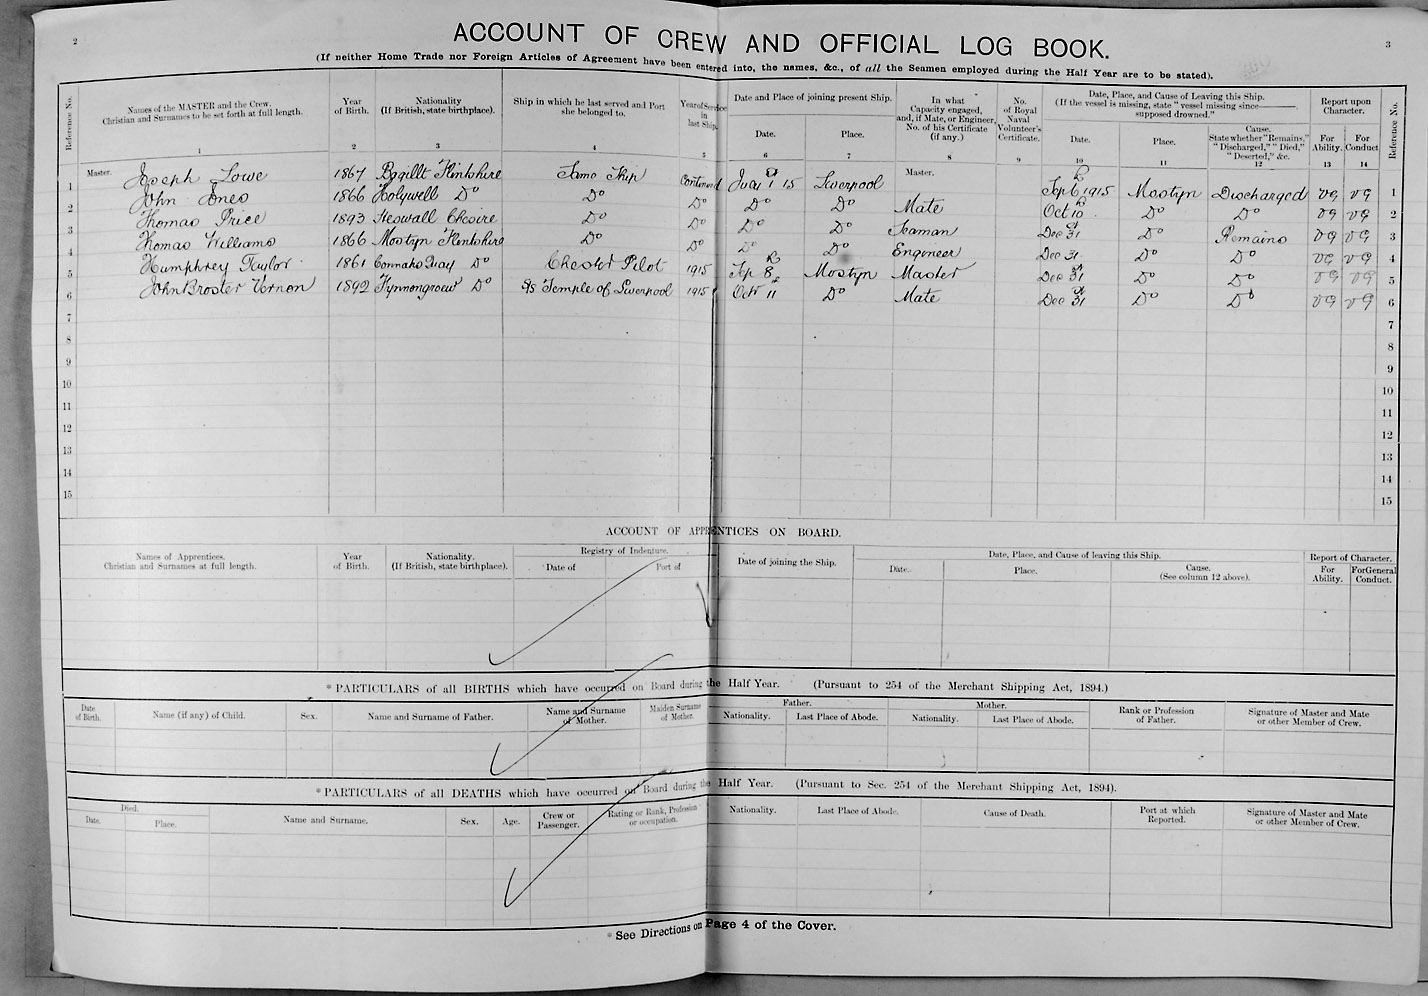 2
3
ACCOUNT OF CREW AND OFFICIAL LOG BOOK.
(If neither Home Trade nor Foreign Articles of Agreement have been entered into, the names, &c., of all the Seamen employed during the Half Year are to be stated).
Reference No. Names of the MASTER and the Crew. Christian and Surnames to be set forth at full length. Year of Birth. Nationality (If British, state birthplace). Ship in which he last served and Port she belonged to. Year of Service in last Ship. Date and Place of joining present Ship. Date. Place. In what Capacity engaged, and, if Mate, or Engineer, No. of his Certificate (if any.) No. of Royal Naval Volunteer's Certificate. Date, Place, and Cause of Leaving this Ship. (If the vessel is missing, state "vessel missing since——— supposed drowned.") Date. Place. Cause. State whether "Remains," "Discharged," "Died," "Deserted," &c. Report upon Character. For Ability. For Conduct Reference No.
1 2 3 4 5 6 7 8 9 10 11 12 13 14
1 Master. Joseph Lowe 1867 Bagillt Flintshire Same Ship Continued July 1st 15 Liverpool Master. Sep 6th 1915 Mostyn Discharged VG VG 1
2 John Jones 1866 Holywell Do Do Do Do Do Mate Oct 10th Do Do VG VG 2
3 Thomas Price 1893 Do Do Do Do Seaman Dec 31st Do Remains VG VG 3
4 Thomas Williams 1866 Mostyn Flintshire Do Do Do Do Engineer Dec 31 Do Do VG VG 4
5 Humphrey Taylor 1861 Connahs Quay Do Chester Pilot 1915 Sep 8th Mostyn Master Dec 31st Do Do VG VG 5
6 John Broster Vernon 1892 Do S/s Temple of Liverpool 1915 Oct 11th Do Mate Dec 31st Do Do VG VG 6
7 7
8 8
9 9
10 10
11 11
12 12
13 13
14 14
15 15
ACCOUNT OF APPRENTICES ON BOARD.
Names of Apprentices. Christian and Surnames at full length. Year of Birth. Nationality. (If British, state birthplace). Registry of Indenture. Date of Port of Date of joining the Ship. Date, Place, and Cause of leaving this Ship. Date. Place. Cause. (See column 12 above). Report of Character. For Ability. For General Conduct.
* PARTICULARS of all BIRTHS which have occurred on Board during the Half Year. (Pursuant to 254 of the Merchant Shipping Act, 1894.)
Date of Birth. Name (if any) of Child. Sex. Name and Surname of Father. Name and Surname of Mother. Maiden Surname of Mother. Father. Nationality. Last Place of Abode. Mother. Nationality. Last Place of Abode. Rank or Profession of Father. Signature of Master and Mate or other Member of Crew.
* PARTICULARS of all DEATHS which have occurred on Board during the Half Year. (Pursuant to Sec. 254 of the Merchant Shipping Act, 1894).
Died. Date. Place. Name and Surname. Sex. Age. Crew or Passenger. Rating or Rank, Profession or occupation. Nationality. Last Place of Abode. Cause of Death. Port at which Reported. Signature of Master and Mate or other Member of Crew.
* See Directions on Page 4 of the Cover.